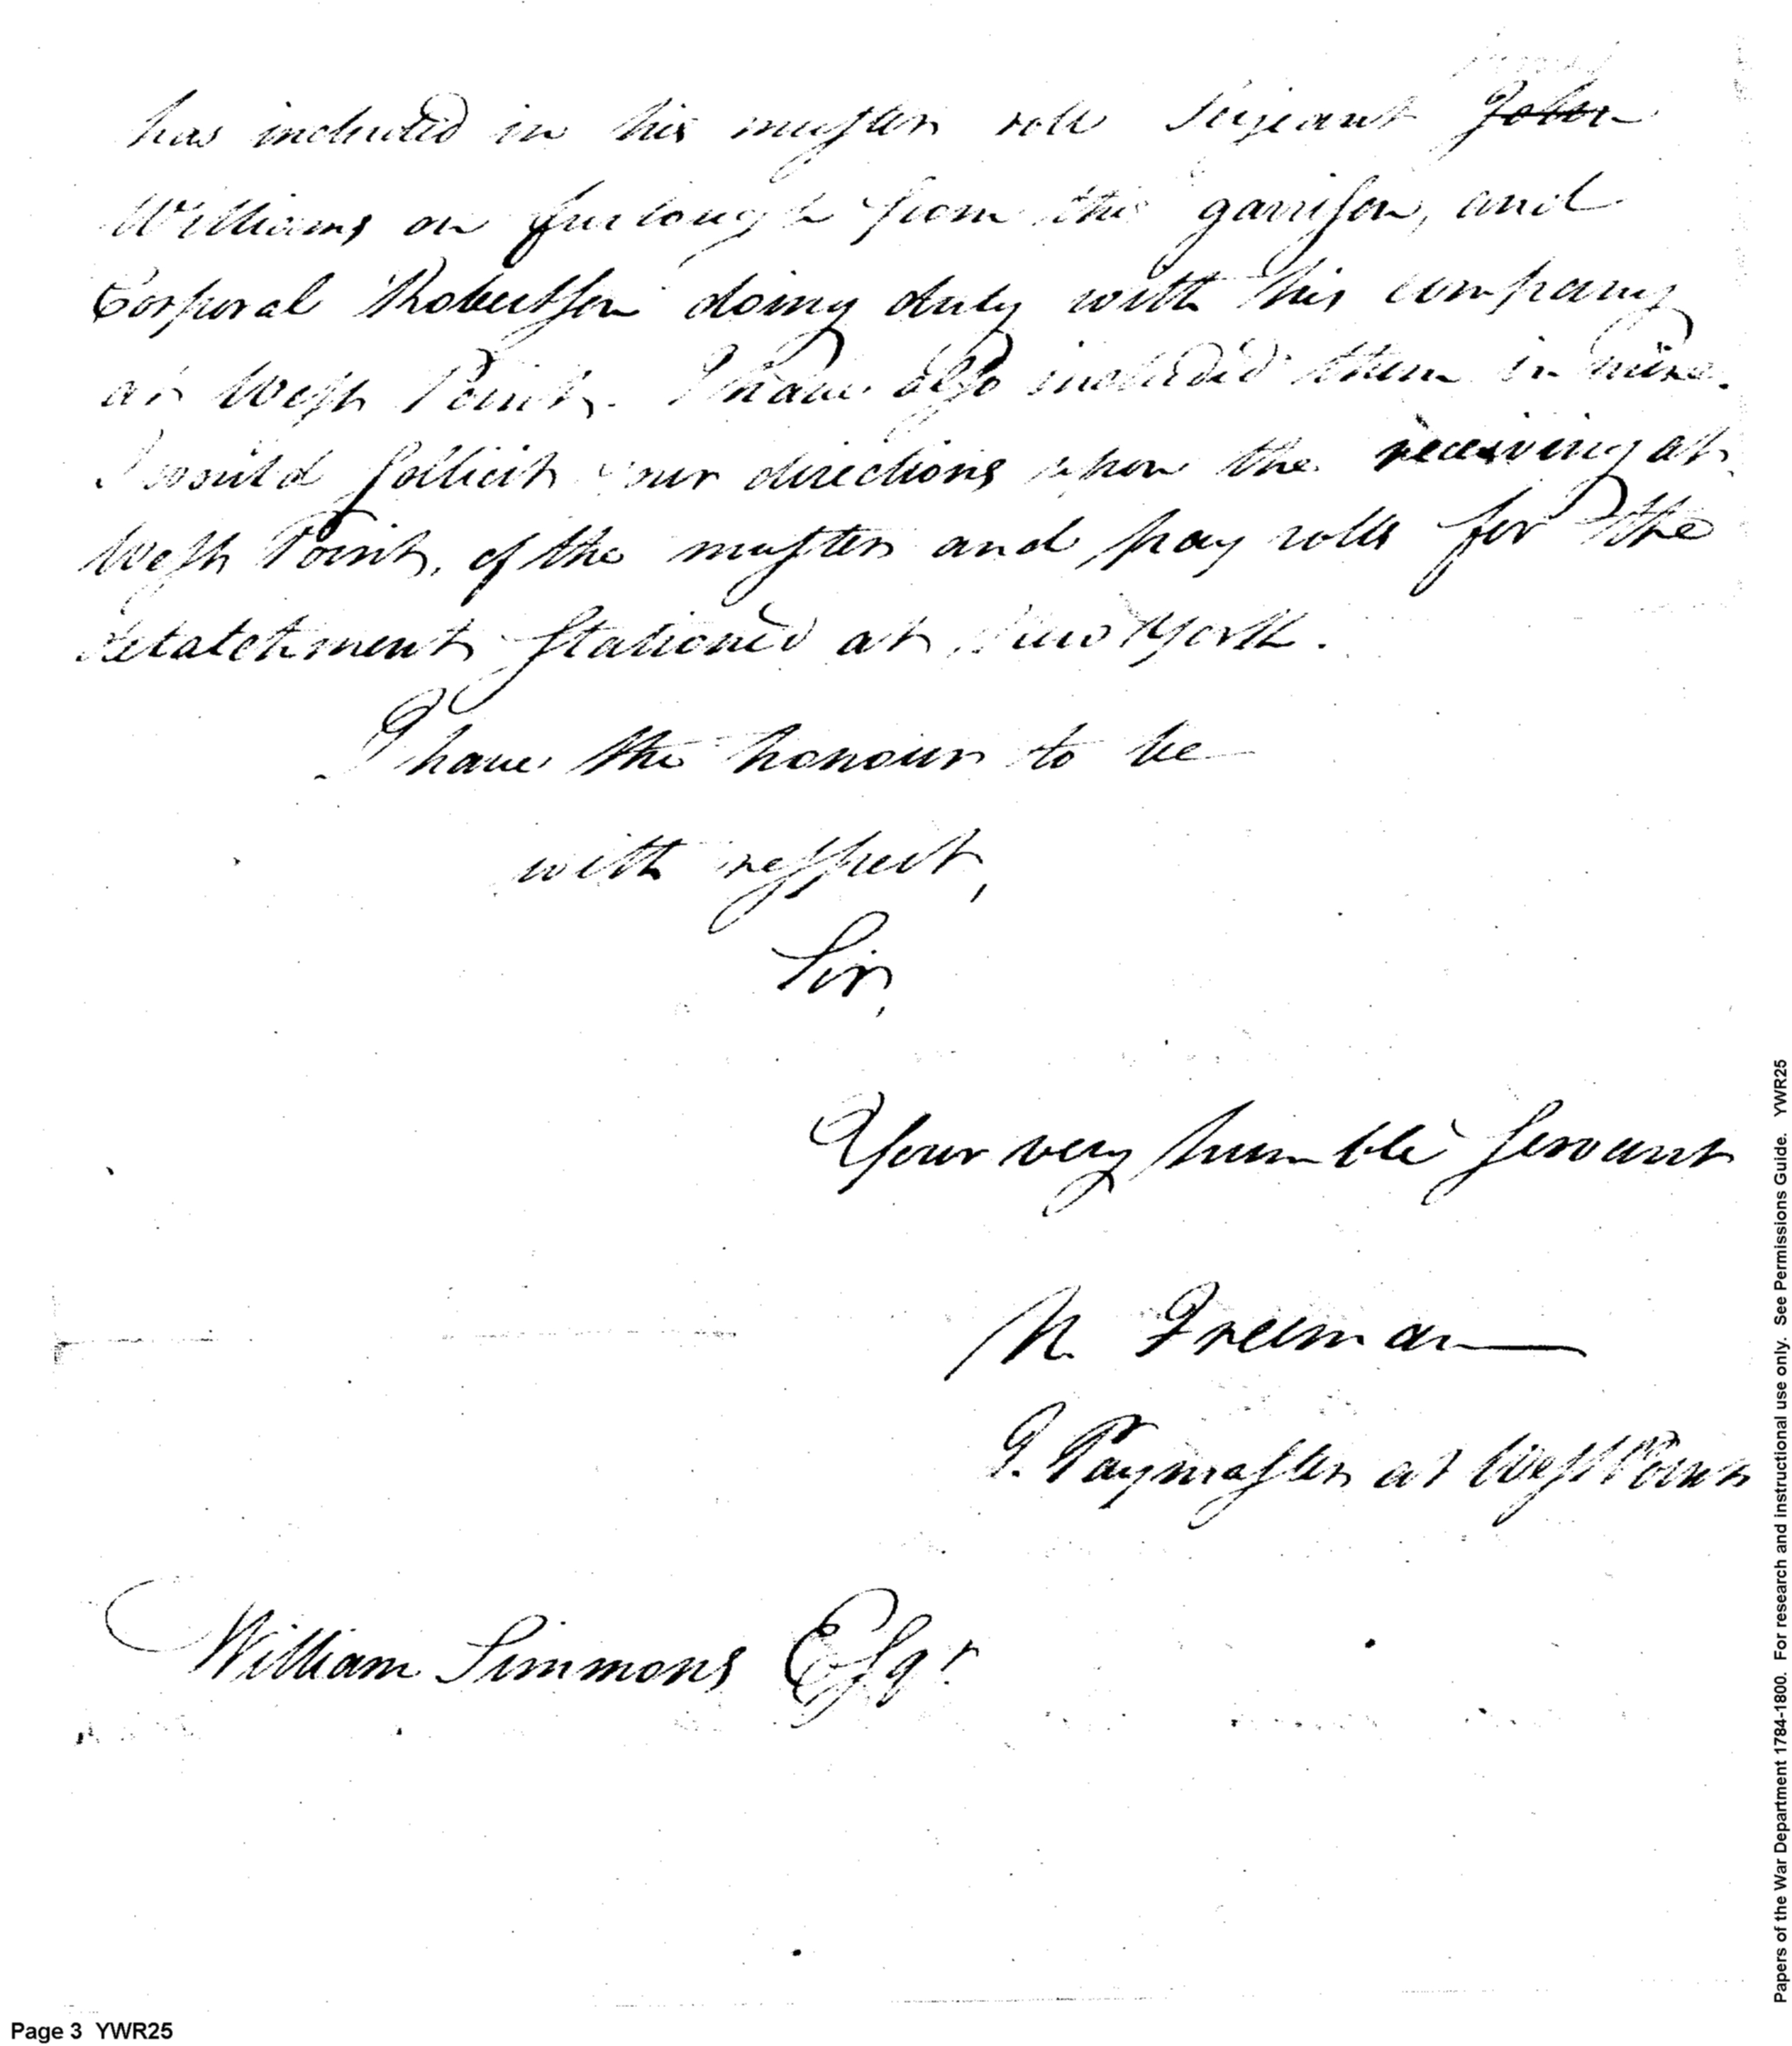 has included in his muster roll Serjeant John
Williams on furlough from this garrison, and
Corporal Robertson doing duty with his company
at West Point. I have also included them in mine.
I would sollicit your directions upon the receiving at
West Point, of the muster and pay rolls for the
detatchment stationed at New York.
I have the honour to be
with respect,
Sir,
Your very humble servant
N. Freeman
P. Paymaster at West Point
William Simmons Esqr
Page 3 YWR25
Papers of the War Department 1784-1800. For research and instructional use only. See Permissions Guide. YWR25